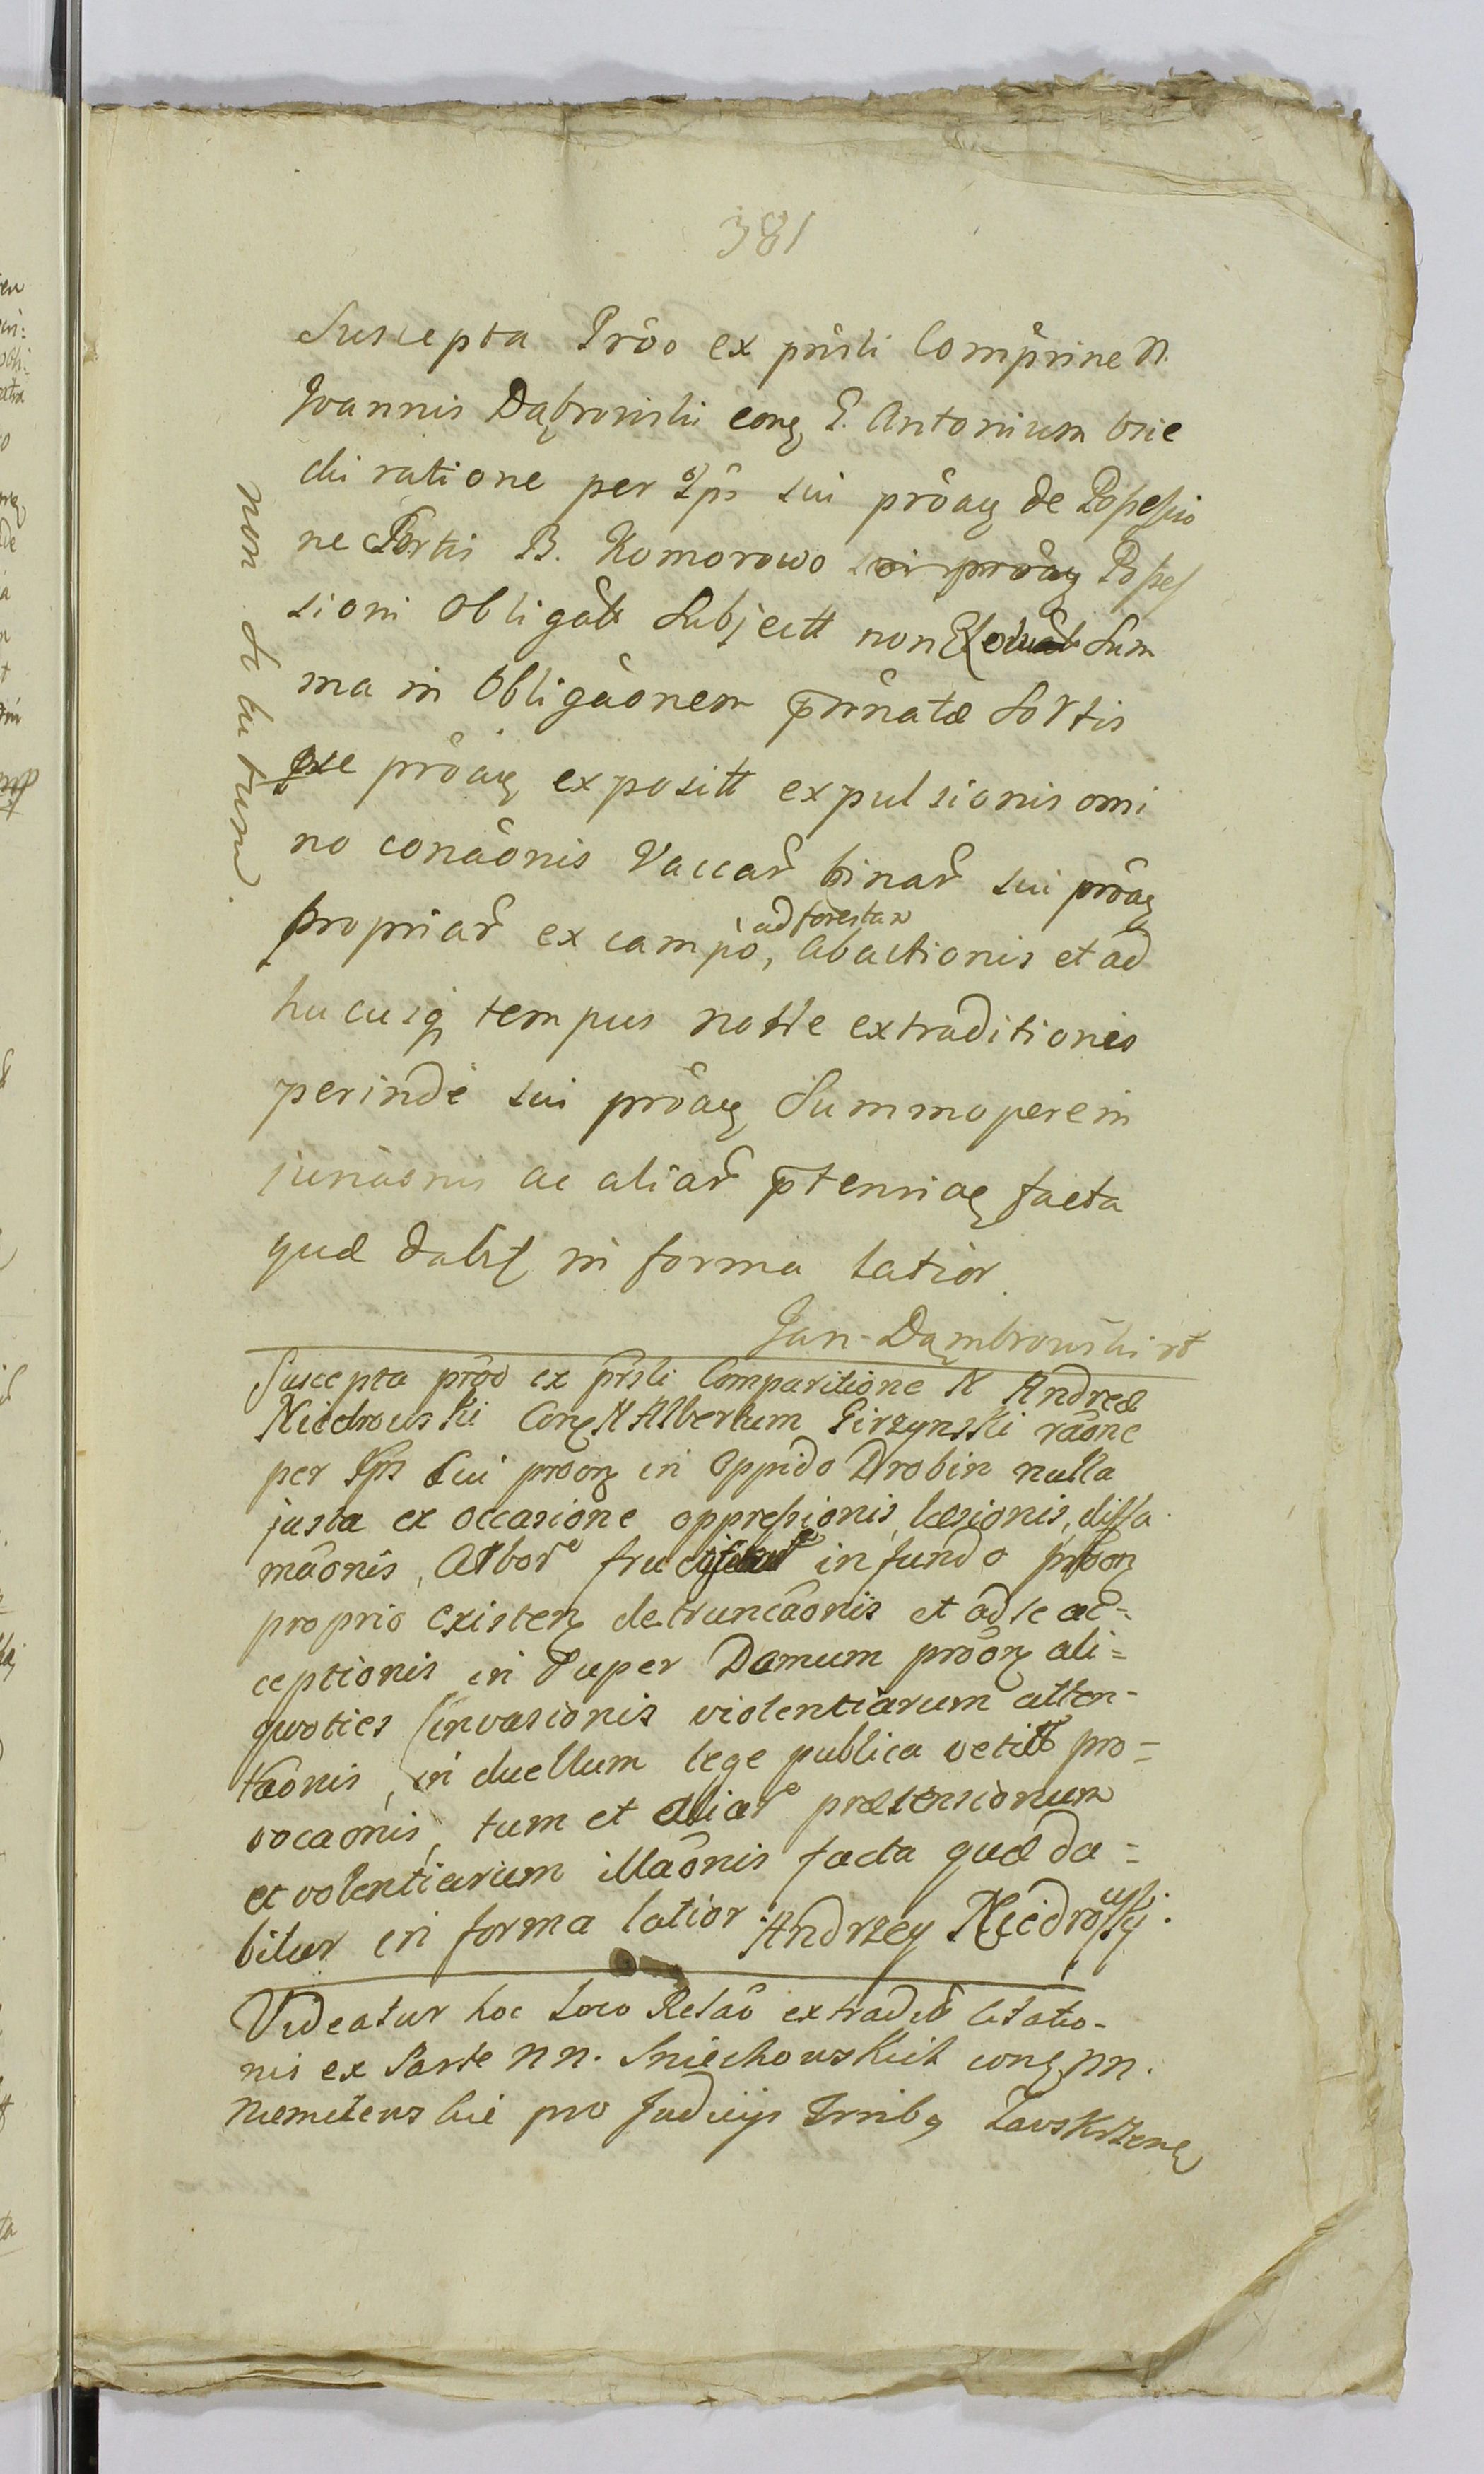 381
Suscepta Prôo ex prîsti Compr̂ine N.
Joannis Dąbrowski conq̨ G. Antonium Brie
ski ratione per Ip̂s sui prôaq̨ de Possessio
ne Sortis B. Komorowo sui prôaq̨ Posses
sioni Obligâtt Subjectt non Elevat Sum
ma in Obligâonem p̄rinatæ Sortis
per prôaq̨ expositt expulsionis omi
no conâonis Vaccar̂ binar̂ sui prôaq̨
ad forestan
propriar̂ ex campo, abactionis et ad
hucusq̨ tempus nolle extraditionis
perinde sui prôaq̨ Summopere in
juriâonis ac aliar̂ p̄tensiaq̨ facta
quæ dabit in forma latior
non substratum
Jan Dąmbrowski
Suscepta prôo ex pr̂sti Comparitione N Andreæ
Niedrowski Conq̨ N Albertum Girzynski râone
per Ip̂s Sui prôorq̨ in Oppido Drobin nulla
justa ex occasione oppressionis, læsionis, diffa
mâonis, Arbor̂ in fundo prôorq̨
proprio existenq̨ detruncâonis et ad se ac=
ceptionis in Super Domum prôorq̨ ali=
quoties invasionis violentiarum atten-
tâonis, in duellum lege publica vetitt pro=
vocâonis, tum et aliar̂ prætensionum
et volentiarum illâonis facta quæ da=
bitur in forma latior. Andrzey Niedroſky
Videatur hoc Loco Relâo extradit̂ Citatio-
nis ex Parte NN. Sniechowskich conq̨ NN.
Niemilewskie pro Judicijs Trrîbq̨ Zawskrzenq̨